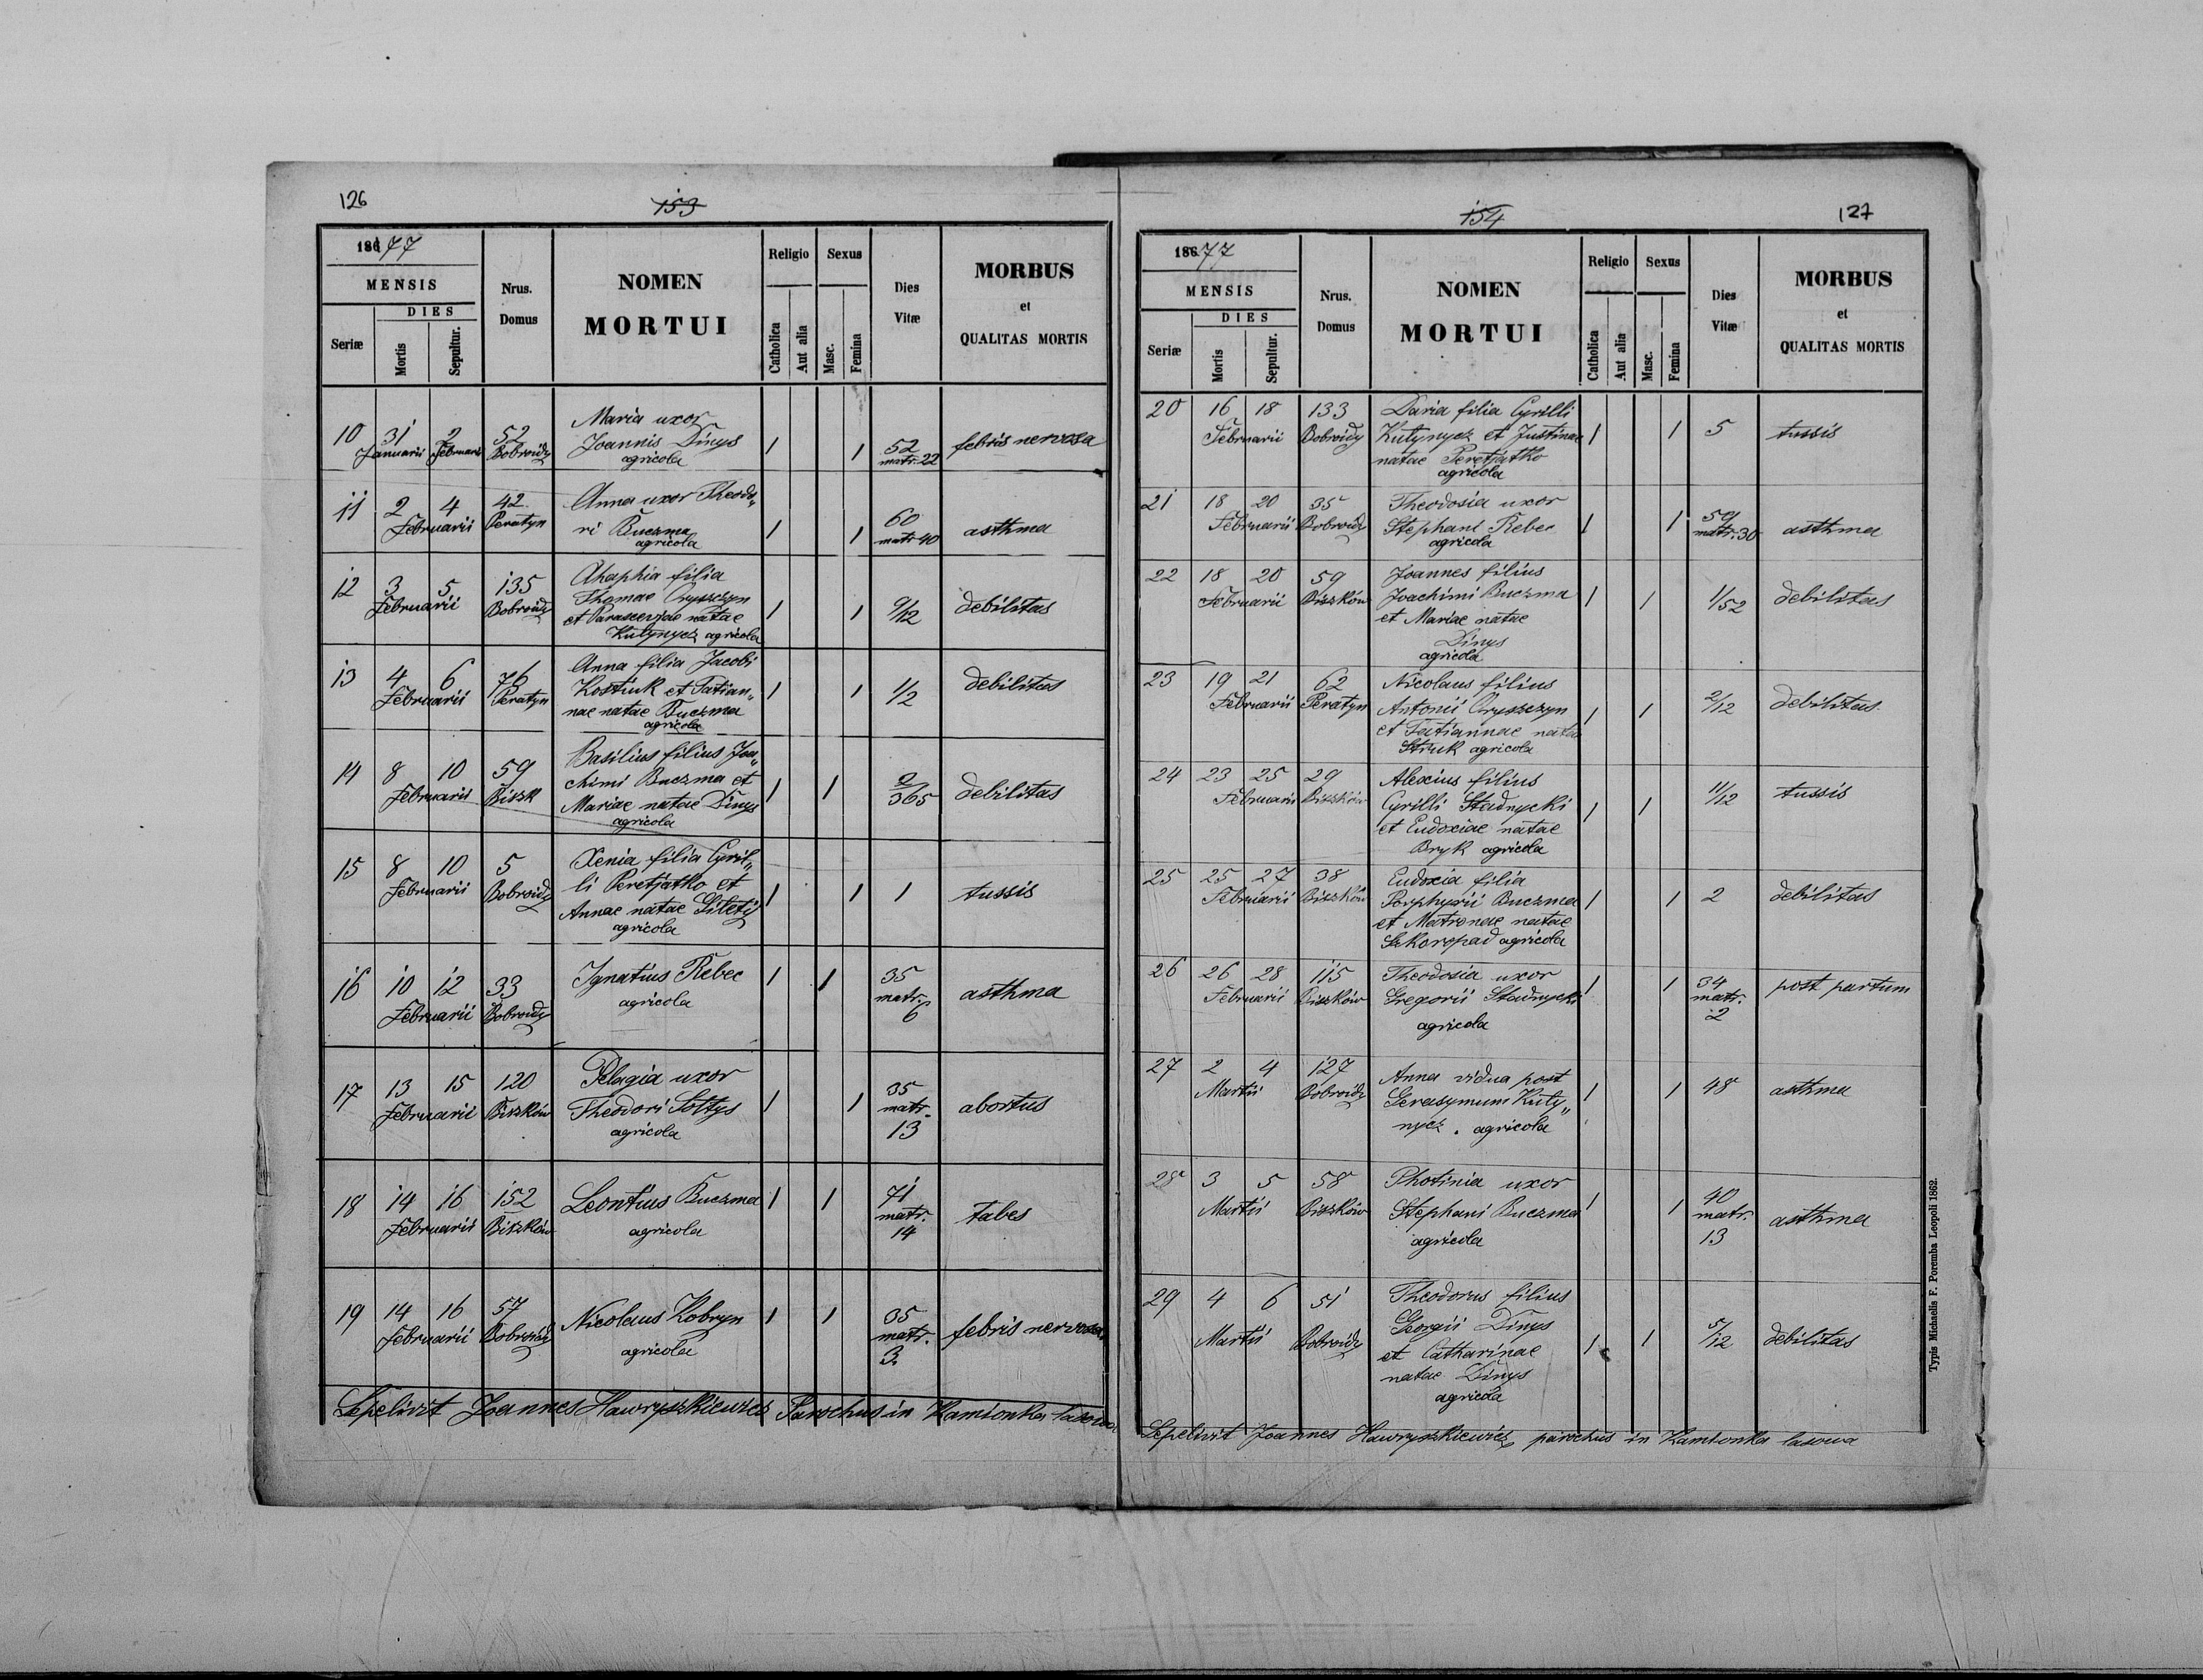 126
153
1877
MENSIS
DIES
Seriæ
Mortis
Sepultur.
Nrus.
Domus
NOMEN
MORTUI
Religio
Catholica
Aut alia
Sexus
Masc.
Femina
Dies
Vitæ
MORBUS
et
QUALITAS MORTIS
10 31 2 52 Maria uxor
Januarii Februarii Bobroidy Joannis Dinys 1 1 52 febris nervosa
agricola matr. 22
11 2 4 42 Anna uxor Theodo„
Februarii Peratyn ri Buczma 1 1 60 asthma
agricola matr 40
12 3 5 135 Ahaphia filia
Februarii Bobroidy Thomae Oryszczyn 1 1 9/12 debilitas
et Parascevjae natae
Kutynycz agricola
13 4 6 76 Anna filia Jacobi
Februarii Peratyn Kostiuk et Tatian„ 1 1 1/2 debilitas
nae natae Buczma
agricola
14 8 10 59 Basilius filius Joa„
Februarii Biszk chimi Buczma et 1 1 2/365 debilitas
Mariae natae Dinys
agricola
15 8 10 5 Xenia filia Cyril„
Februarii Bobroidy li Peretjatko et 1 1 1 tussis
Annae natae
agricola
16 10 12 33 Ignatius Rebec 1 1 35 asthma
Februarii Bobroidy agricola matr.
6
17 13 15 120 Pelagia uxor
Februarii Biszków Theodori Soltys 1 1 35 abortus
agricola matr.
13
18 14 16 152 Leontius Buczma 1 1 71 tabes
Februarii Biszków agricola matr.
14
19 14 16 57 Nicolaus Kobryn 1 1 35 febris nervosa
Februarii Bobroidy agricola matr.
3.
Sepelivit Joannes Hawryszkiewicz Parochus in Kamionka lasowa
154
127
1877
MENSIS
DIES
Seriæ
Mortis
Sepultur.
Nrus.
Domus
NOMEN
MORTUI
Religio
Catholica
Aut alia
Sexus
Masc.
Femina
Dies
Vitæ
MORBUS
et
QUALITAS MORTIS
20 16 18 133 Daria filia Cyrilli
Februarii Bobroidy Kutynycz et Justinae 1 1 5 tussis
natae Peretjatko
agricola
21 18 20 35 Theodosia uxor
Februarii Bobroidy Stephani Rebec 1 1 59 asthma
agricola matr. 30
22 18 20 59 Joannes filius
Februarii Biszków Joachimi Buczma 1 1 1/52 debilitas
et Mariae natae
Dinys
agricola
23 19 21 62 Nicolaus filius
Februarii Peratyn Antonii Oryszczyn 1 1 2/12 debilitas
et Tatiannae natae
Struk agricola
24 23 25 29 Alexius filius
Februarii Biszków Cyrilli Stadnycki 1 1 11/12 tussis
et Eudoxiae natae
Bryk agricola
25 25 27 38 Eudoxia filia
Februarii Biszków Porphyrii Buczma 1 1 2 debilitas
et Matronae natae
Szkoropad agricola
26 26 28 115 Theodosia uxor
Februarii Biszków Gregorii Stadnycki 1 1 34 post partum
agricola matr.
2
27 2 4 127 Anna vidua post
Martii Bobroidy Gerasymum Kuty„ 1 1 48 asthma
nycz. agricola
28 3 5 58 Photinia uxor
Martii Biszków Stephani Buczma 1 1 40 asthma
agricola matr.
13
29 4 6 51 Theodorus filius
Martii Bobroidy Georgii Dinys 1 1 5/12 debilitas
et Catharinae
natae Dinys
agricola
Sepelivit Joannes Hawryszkiewicz parochus in Kamionka lasowa
Typis Michaelis F. Poremba Leopoli 1862.